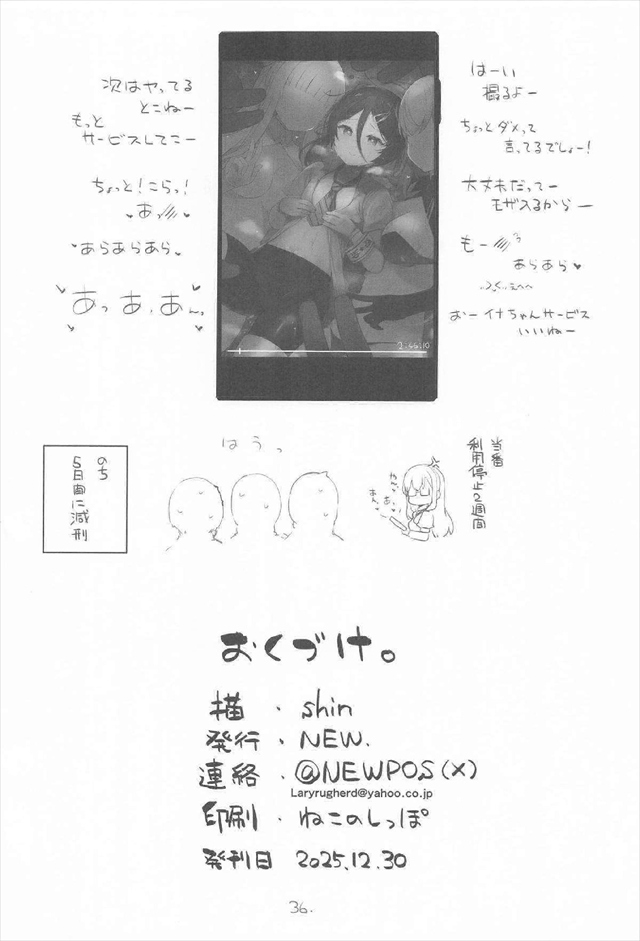 はーい
撮るよー
ちょっとダメって
言ってるでしょー!
大丈夫だってー
モザスるからー
もー
あらあら♥
おーイナちゃんサービス
いいねー
次はヤってる
とこねー
もっと
サービスしてこー
ちょっと!こらっ!
♥あっ♥
♥あらあらあら♥
♥あっあ、あんっ♥
2:46:10
当番
利用停止2週間
はうっ
のち
5日間に減刑
おくづけ。
描・shin
発行・NEW.
連絡・@NEWPOS(X)
Laryrugherd@yahoo.co.jp
印刷・ねこのしっぽ
発刊日 2025.12.30
36.